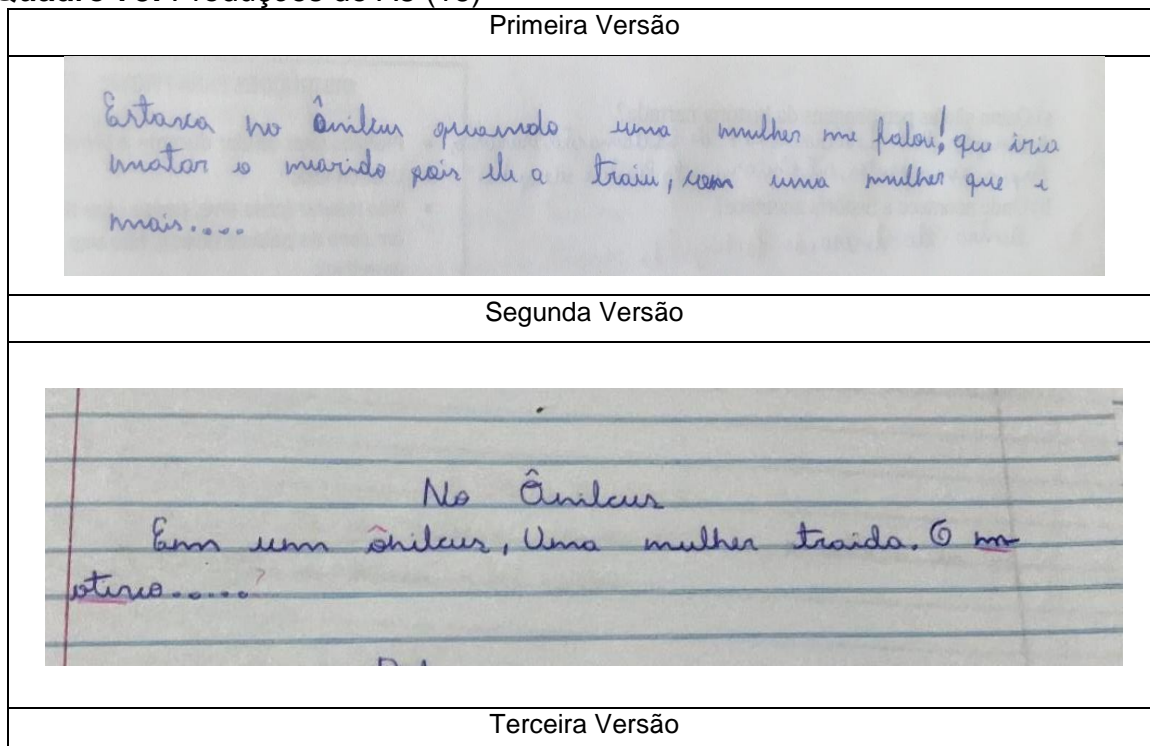 Produções de
Primeira Versão
Estava no ônibus quando uma mulher me falou! que iria
matar o marido pois ele a traiu, com uma mulher que é
mais....
Segunda Versão
No Ônibus
Em um ônibus, Uma mulher traida. O m
otivo.....?
Terceira Versão